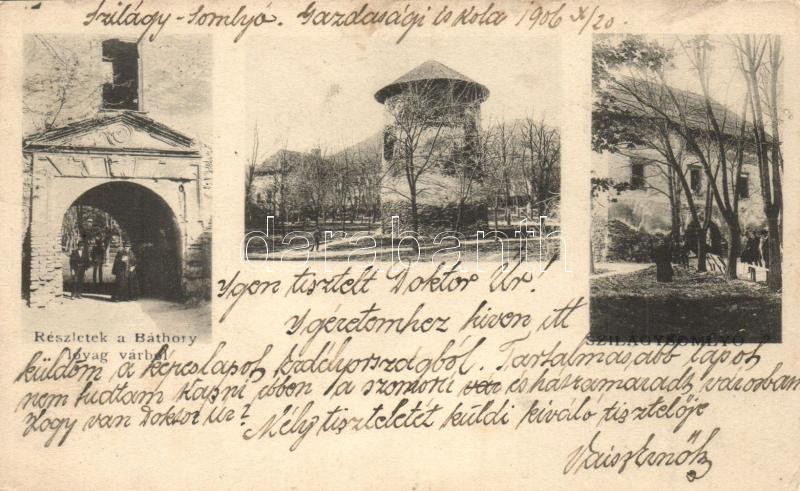 Szilágy-Somlyó. Gazdasági iskola 1906 X/20.
darabanth
Igen tisztelt Doktor Úr!
Részletek a Báthory
lovag várból
SZILÁGYSOMLYÓ
Ígéretemhez híven itt
küldöm a képeslapot Erdélyországból. Tartalmasabb lapot
nem tudtam kapni ebben a szomorú és hátramaradt városban
Hogy van Doktor Úr? Mély tiszteletét küldi kiváló tisztelője